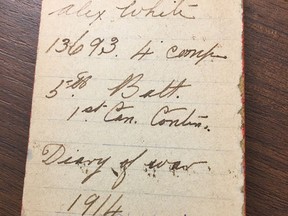 Alex White
13693. 4 comp
5th Batt.
1st Can. Contin.
Diary of war
1914